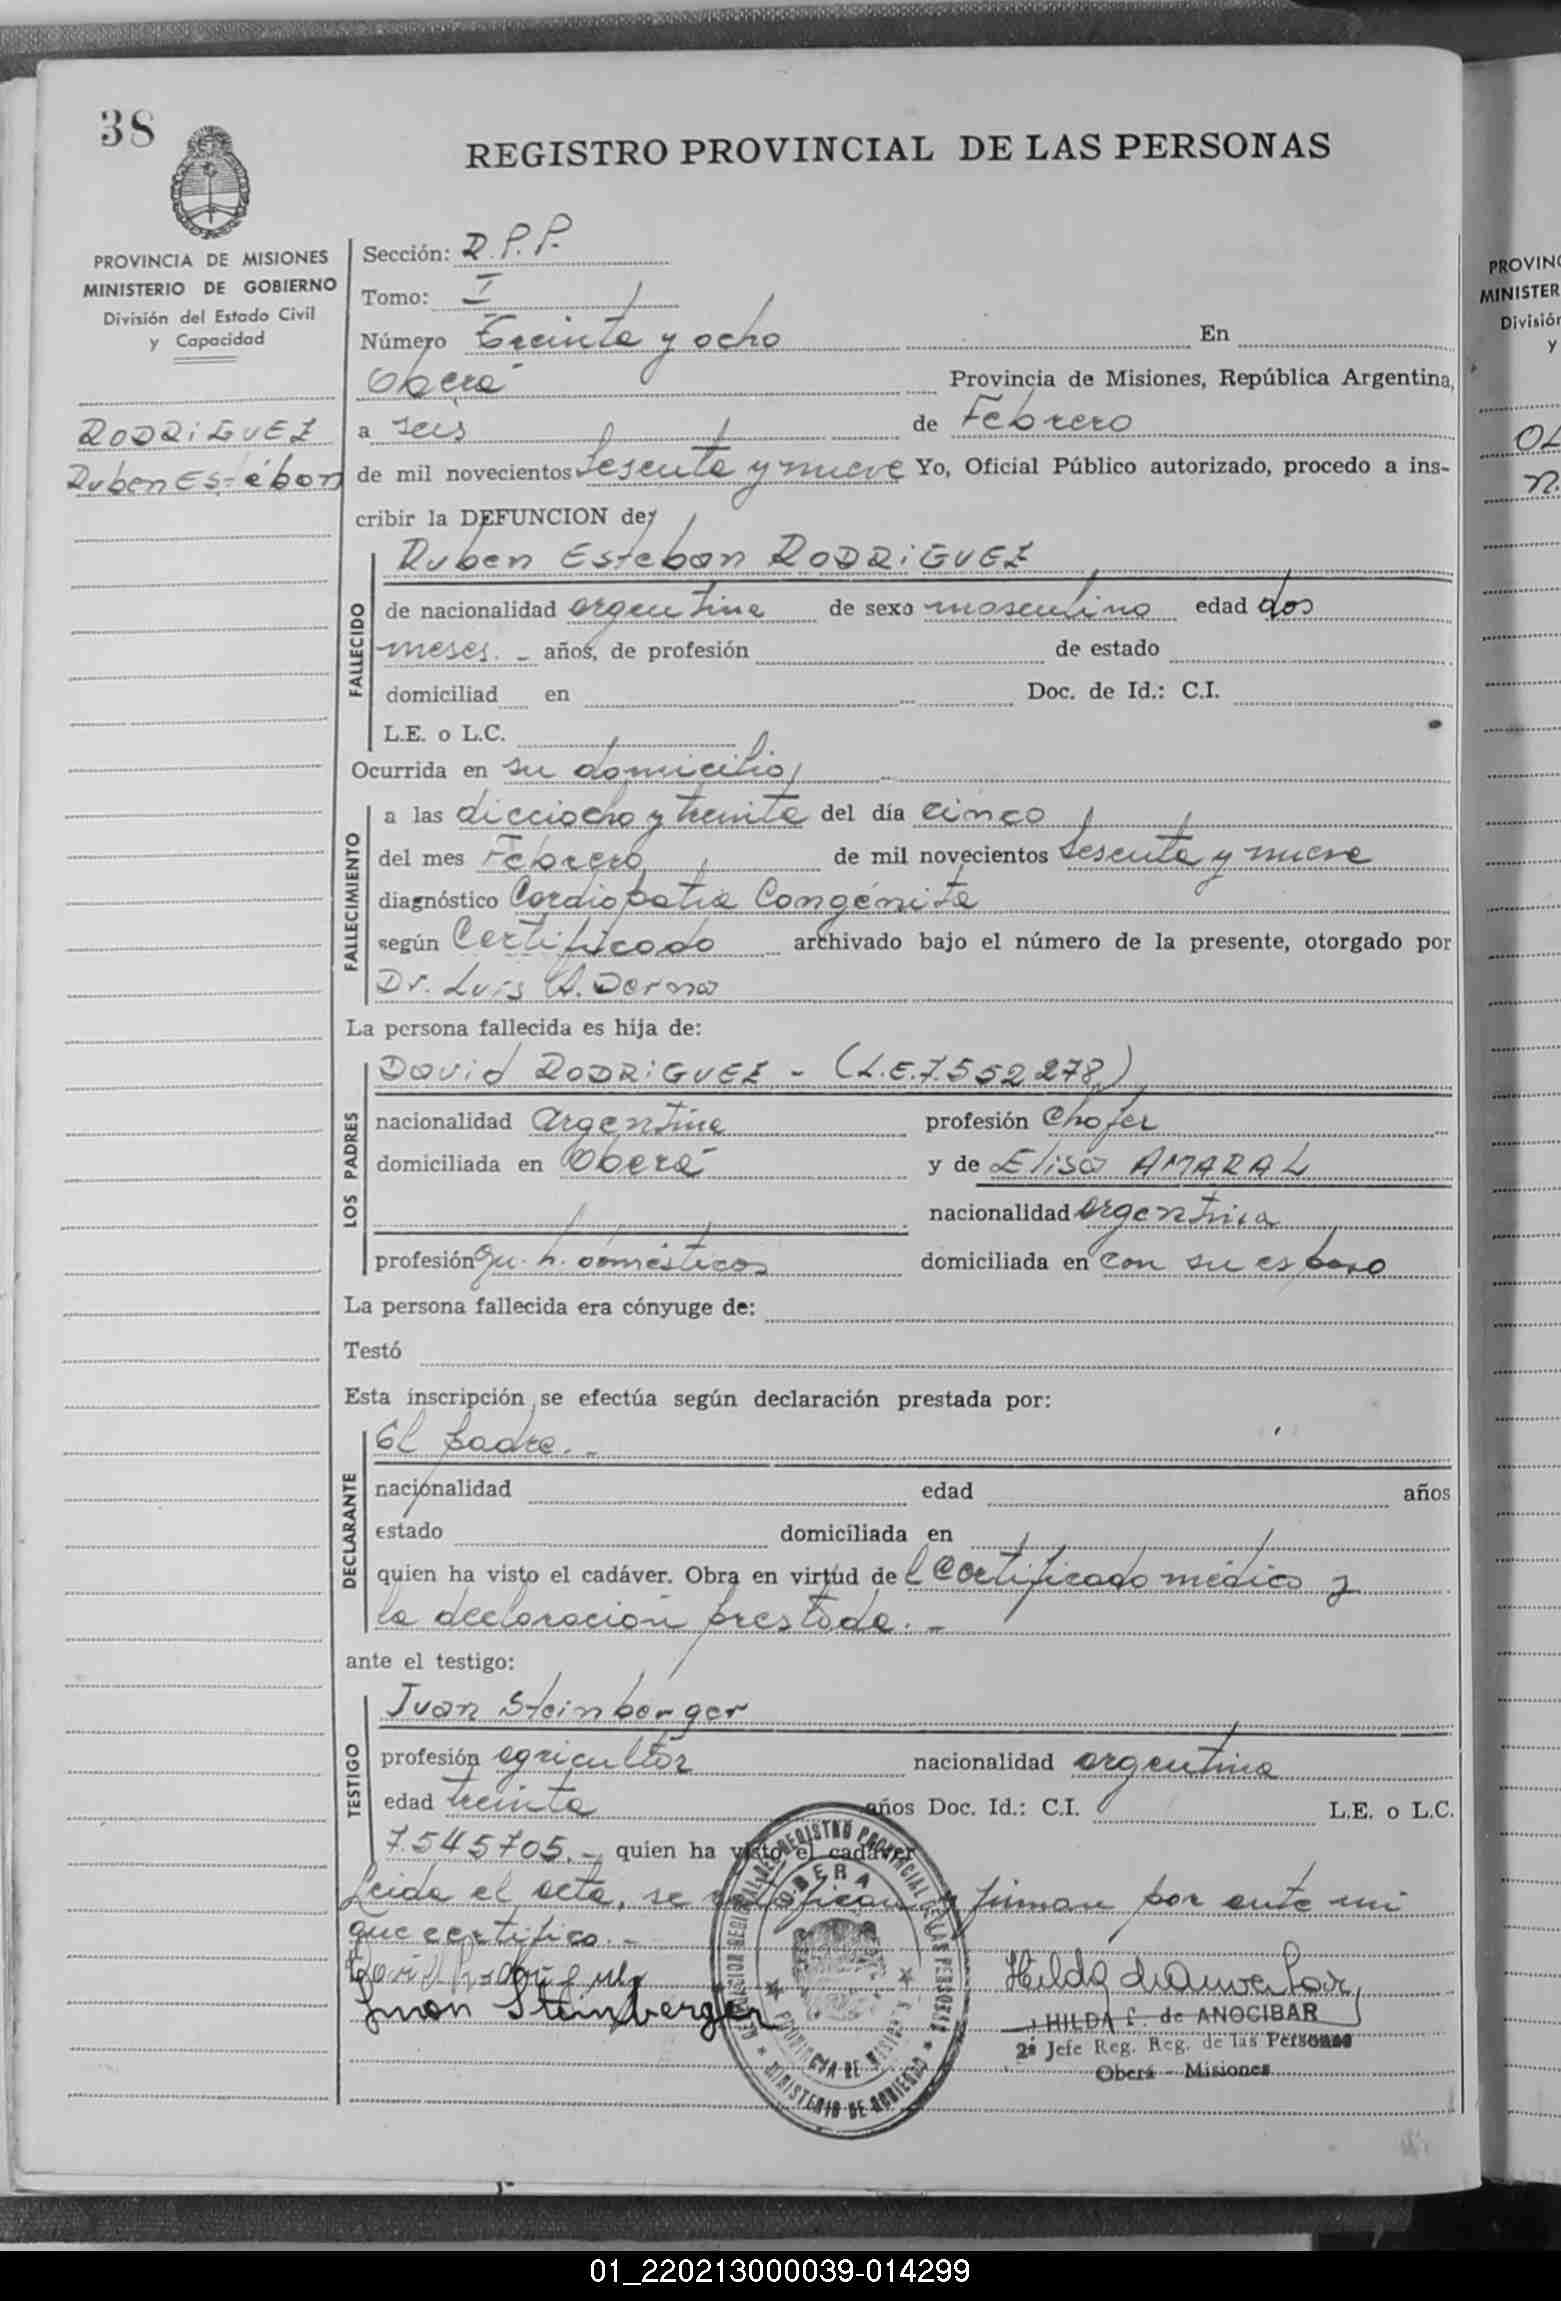 38
REGISTRO PROVINCIAL DE LAS PERSONAS
PROVINCIA DE MISIONES
MINISTERIO DE GOBIERNO
División del Estado Civil
y Capacidad
RODRiGUEZ
Ruben Estébon
Sección: R.P.P.
Tomo: I
Número Treinta y ocho En
Oberá Provincia de Misiones, República Argentina,
a seis de Febrero
de mil novecientos Sesenta y nueve Yo, Oficial Público autorizado, procedo a ins-
cribir la DEFUNCION de:
FALLECIDO
Ruben Esteban RODRiGUEZ
de nacionalidad argentina de sexo masculino edad dos
meses. - años, de profesión de estado
domiciliad en Doc. de Id.: C.I.
L.E. o L.C.
Ocurrida en su domicilio
FALLECIMIENTO
a las dieciocho y treinta del día cinco
del mes Febrero de mil novecientos Sesenta y nueve
diagnóstico Cardiopatia Congénita
según Certificado archivado bajo el número de la presente, otorgado por
Dr. Luis A.
La persona fallecida es hija de:
LOS PADRES
David RODRiGUEZ - (L.E.7.552.278)
nacionalidad Argentina profesión Chofer
domiciliada en Oberá y de Elisa AMARAL
nacionalidad argentina
profesión Qu. h. domésticos domiciliada en con su esposo
La persona fallecida era cónyuge de:
Testó
Esta inscripción se efectúa según declaración prestada por:
DECLARANTE
El padre. -
nacionalidad edad años
estado domiciliada en
quien ha visto el cadáver. Obra en virtud de l Certificado médico y
la declaración prestada. -
ante el testigo:
TESTIGO
Juan Steinberger
profesión agricultor nacionalidad argentina
edad treinta años Doc. Id.: C.I. L.E. o L.C.
7.545705. - quien ha visto el cadáver
Leida el acta, se ratifican y firman por ante mi
que certifico. -
Juan Steinberger
HILDA de ANOCIBAR
2º Jefe Reg. Reg. de las Personas
Oberá - Misiones
REGISTRO PROVINCIAL DE LAS PERSONAS
OBERA
PROVINCIA DE MISIONES
MINISTERIO DE GOBIERNO
PROVINC
MINISTER
División
y
OL
n.
01_220213000039-014299